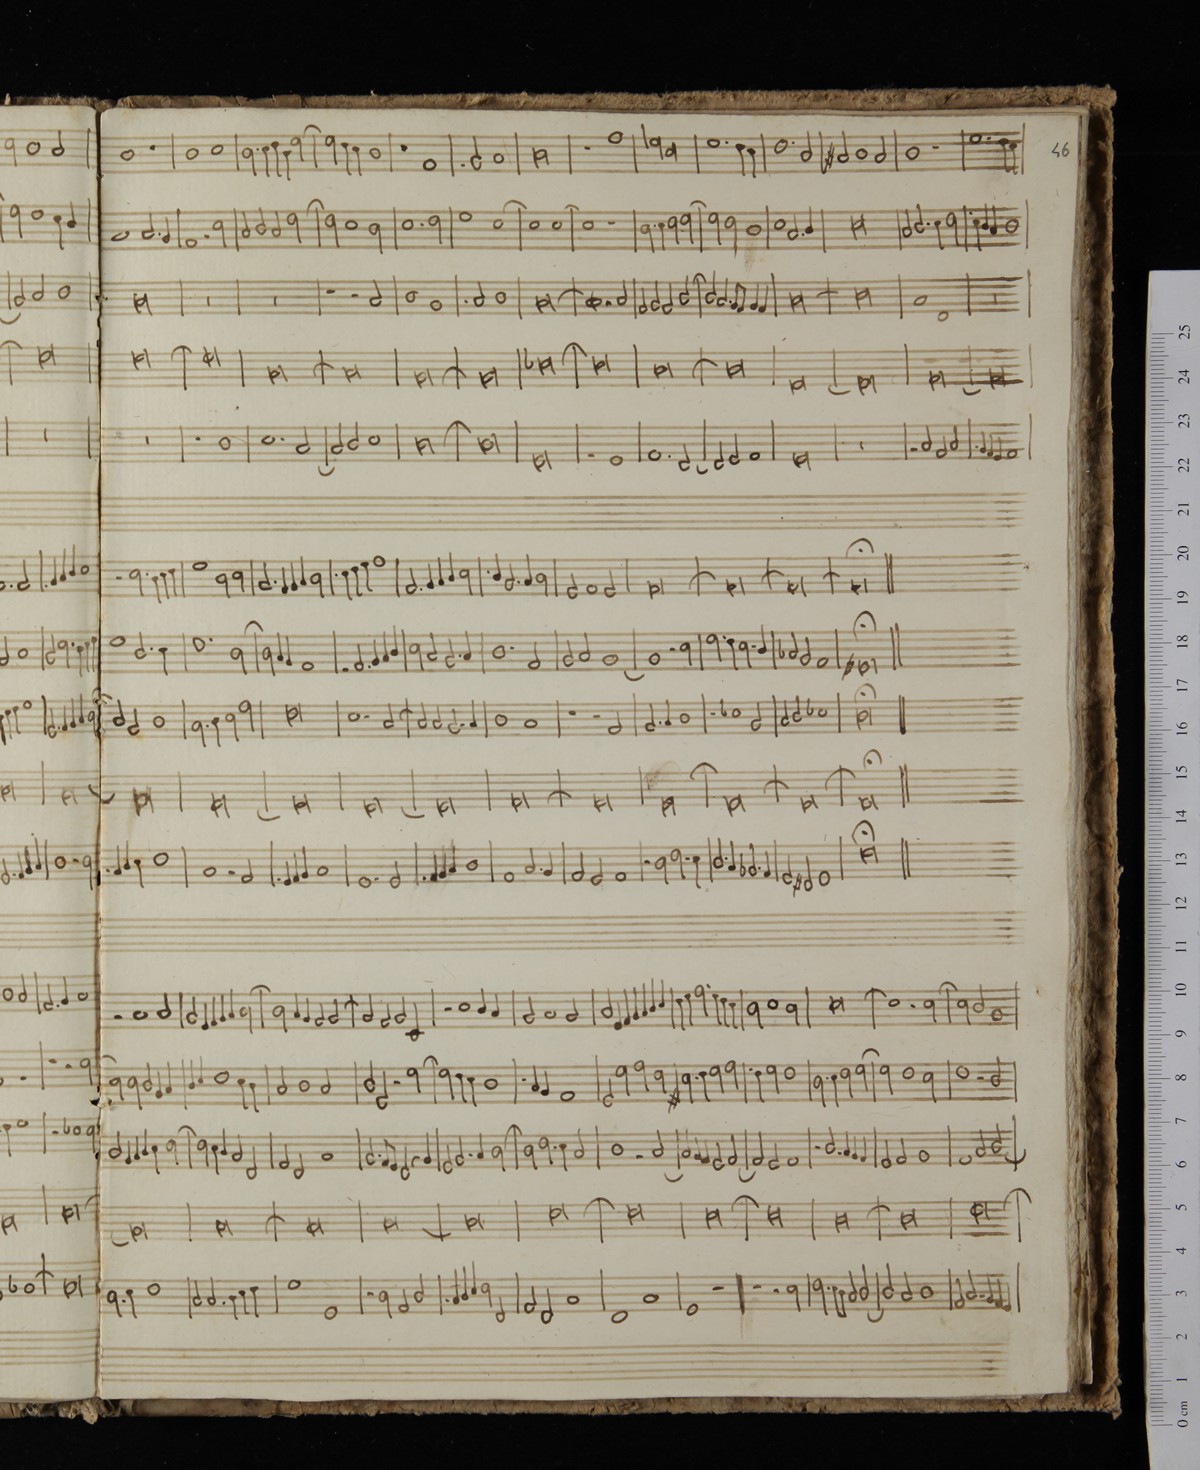 46
25
24
23
22
21
20
19
18
17
16
15
14
13
12
11
10
9
8
7
6
5
4
3
2
1
0 cm